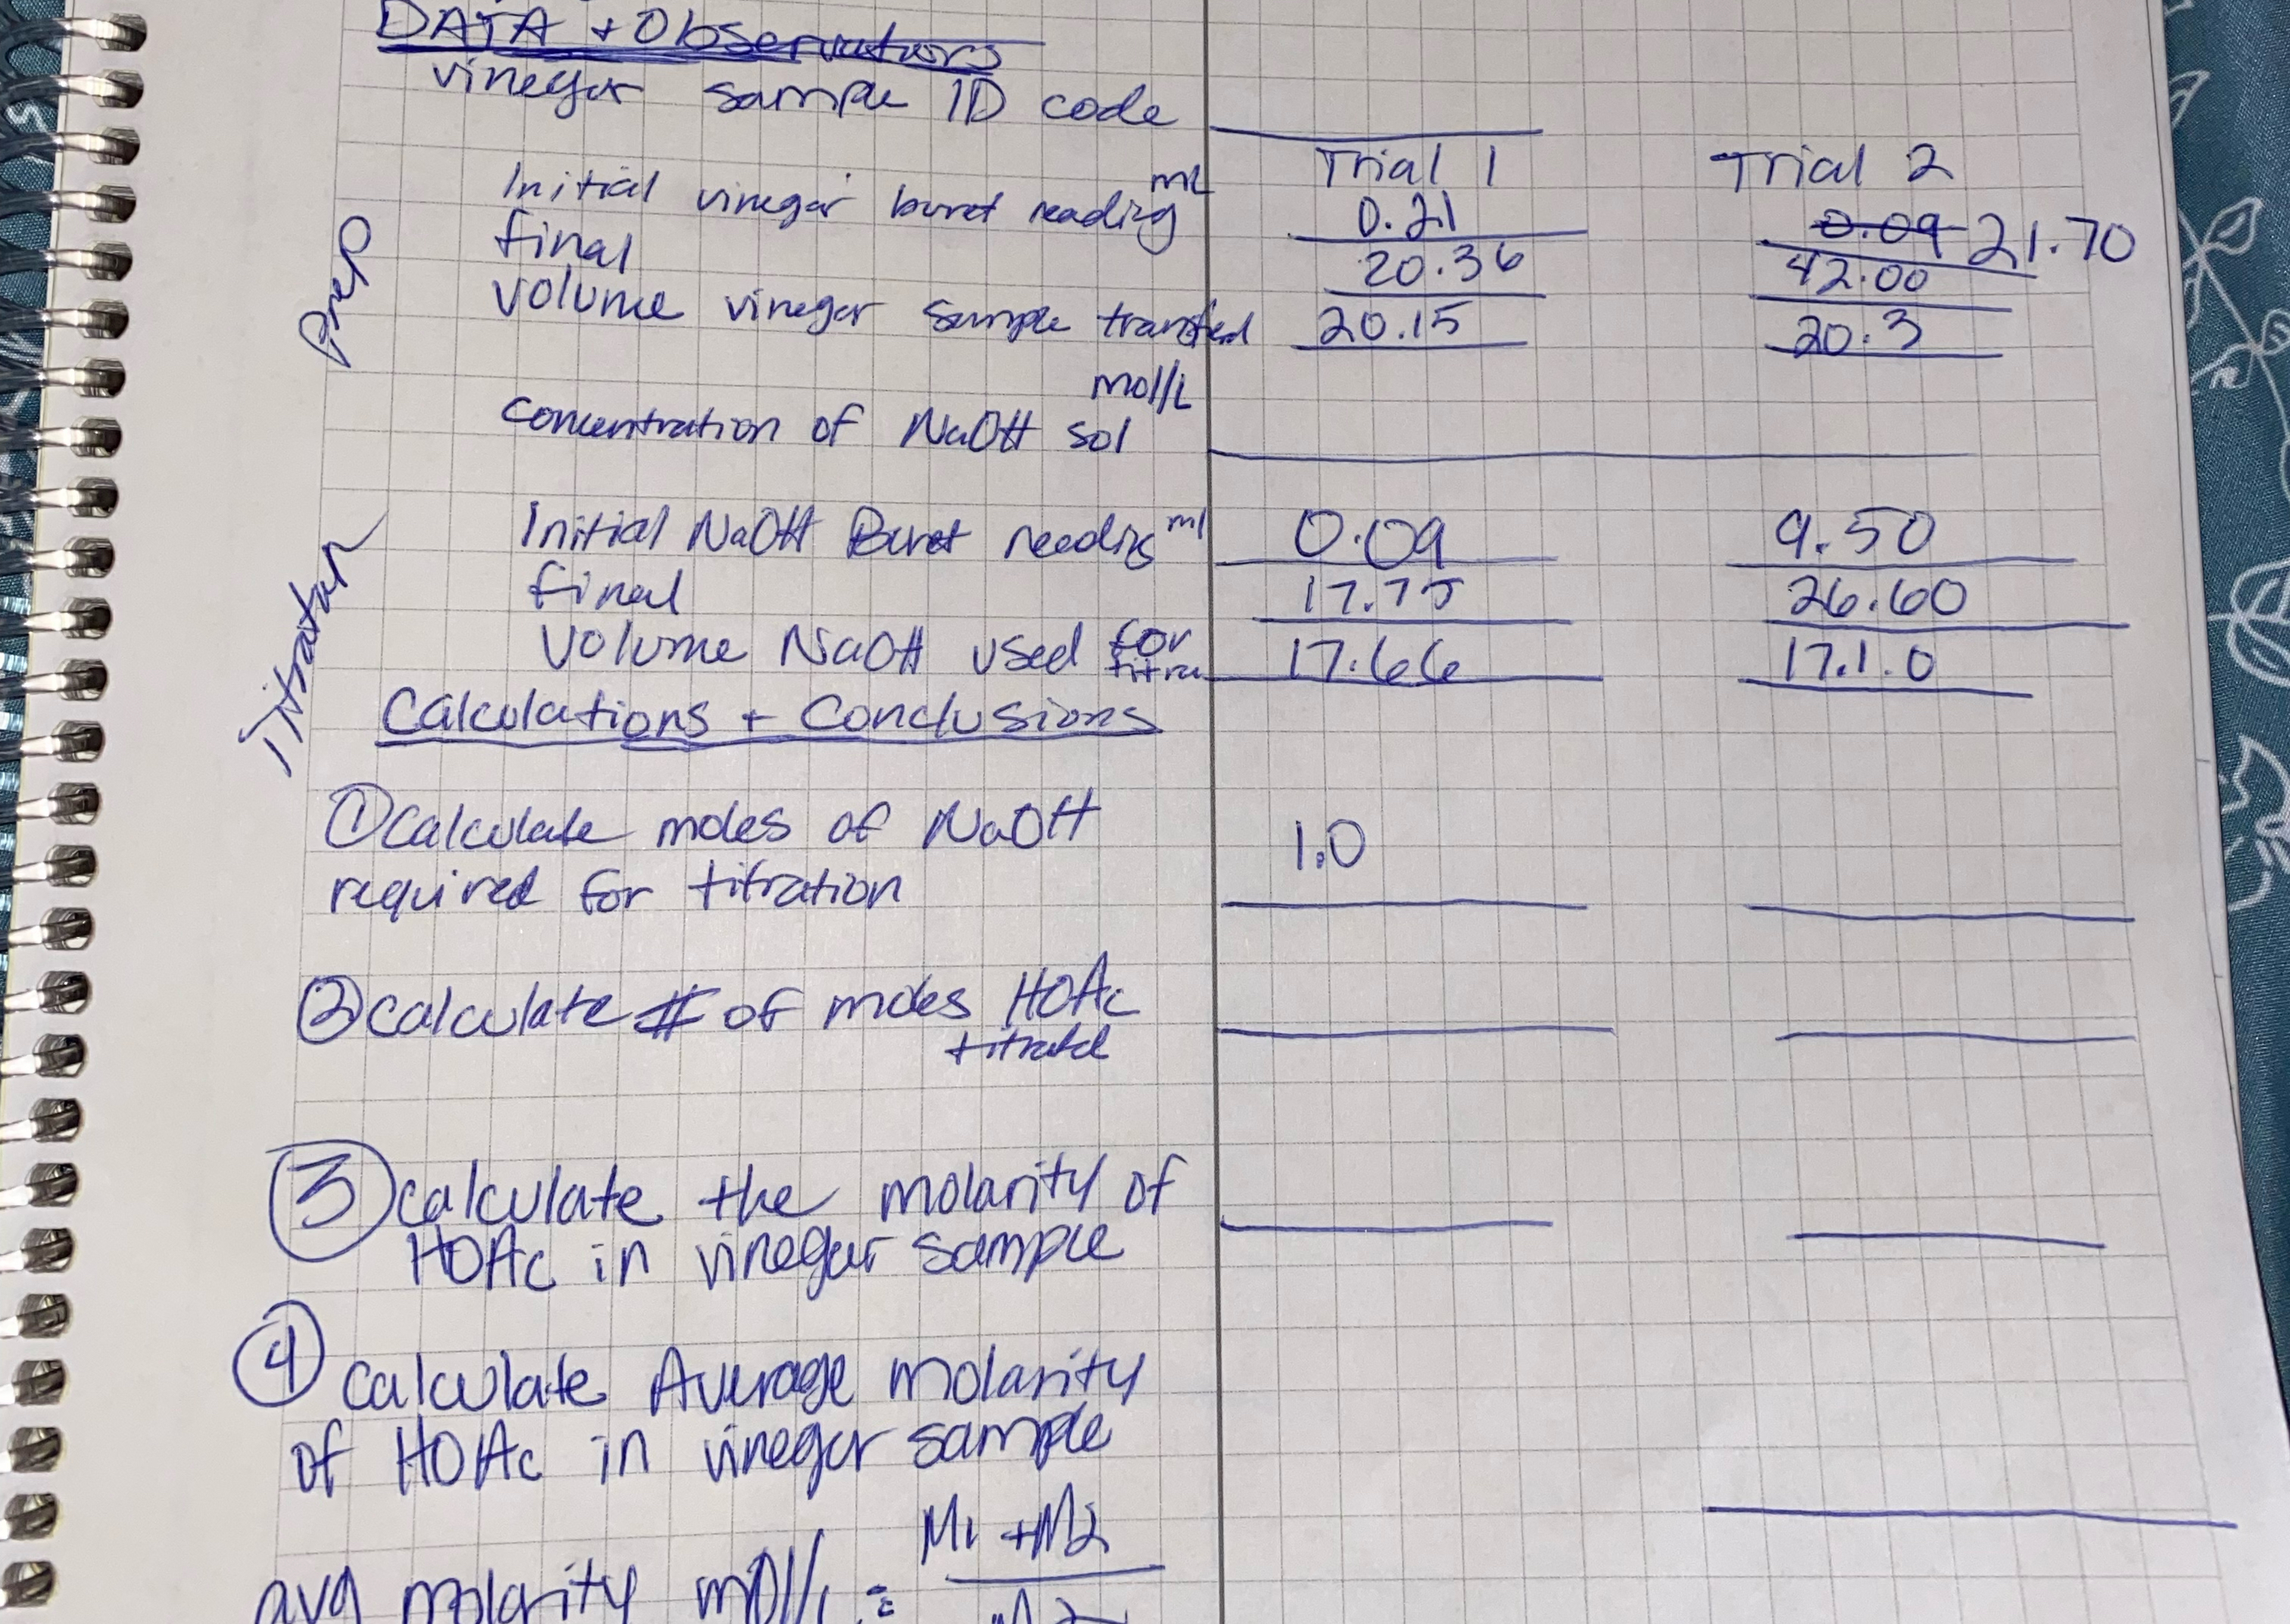 DATA + Observations
vinegar sample ID code
Trial 1 Trial 2
Prep
Initial vinegar buret reading mL 0.21 0.09 21.70
final 20.36 42.00
volume vinegar sample transfed 20.15 20.3
mol/L
concentration of NaOH sol
Titration
Initial NaOH Buret reading ml 0.09 9.50
final 17.75 26.60
Volume NaOH used for titra 17.66 17.1.0
Calculations + Conclusions
① Calculate moles of NaOH 1.0
required for titration
② calculate # of moles HOAc
titrated
③ calculate the molarity of
HOAc in vinegar sample
④ calculate Average molarity
of HOAc in vinegar sample
M1 + M2
avg molarity mol/L =